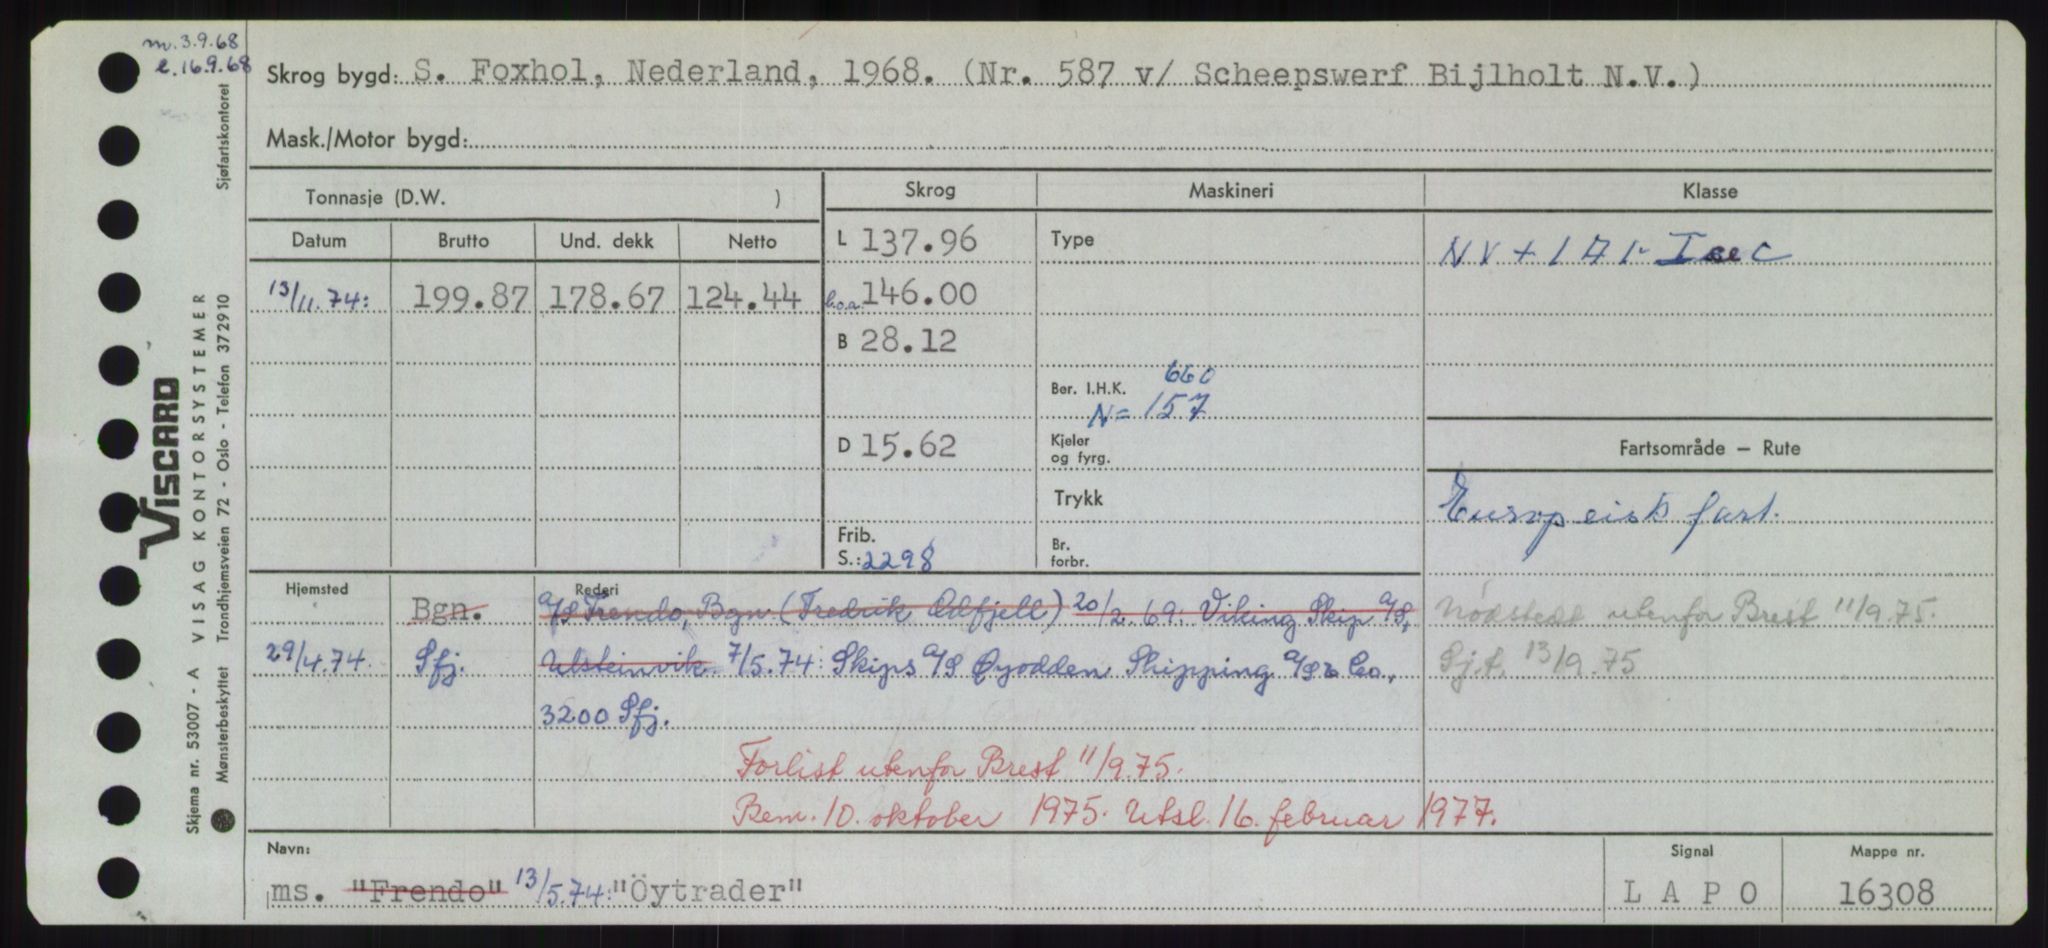 m. 3.9.68
e. 16.9.68
Skrog bygd: S. Foxhol, Nederland, 1968. (Nr. 587 v/ Scheepswerf Bijlholt N.V.)
Mask./Motor bygd:
Tonnasje (D.W. )
Skrog Maskineri Klasse
Datum Brutto Und. dekk Netto
L 137.96 Type NV + 1A1-
13/11.74: 199.87 178.67 124.44 l.o.a. 146.00
B 28.12
Ber. I.H.K. 660
N= 157
D 15.62 Kjeler og fyrg. Fartsområde – Rute
Trykk Europeisk fart.
Frib.
S.: 2298 Br. forbr.
Hjemsted Rederi
Bgn. A/S Frendo, Bgn (Fredrik Odfjell) 20/2.69: Viking Skip A/S, Nödstedt utenfor Brest 11/9.75.
29/4.74. Sfj. Ulsteinvik. 7/5.74: Skips A/S Øyodden Shipping A/S & Co., Sj.f. 13/9.75
3200 Sfj.
Forlist utenfor Brest 11/9.75.
Bem. 10. oktober 1975. Utsl. 16. februar 1977.
Navn: Signal Mappe nr.
ms. "Frendo" 13/5.74: "Öytrader" L A P O 16308
Sjøfartskontoret
VISCARD
VISAG KONTORSYSTEMER
Trondhjemsveien 72 - Oslo - Telefon 372910
Skjema nr. 53007 - A
Mønsterbeskyttet